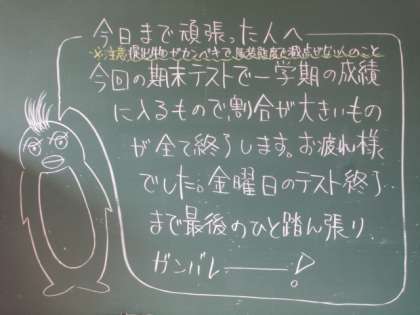 今日まで頑張った人へ
※注意 提出物がカンペキで、授業態度で減点がない人のこと
今回の期末テストで一学期の成績
に入るもので、割合が大きいもの
が全て終了します。お疲れ様
でした。金曜日のテスト終了
まで最後のひと踏ん張り
ガンバレ―――!